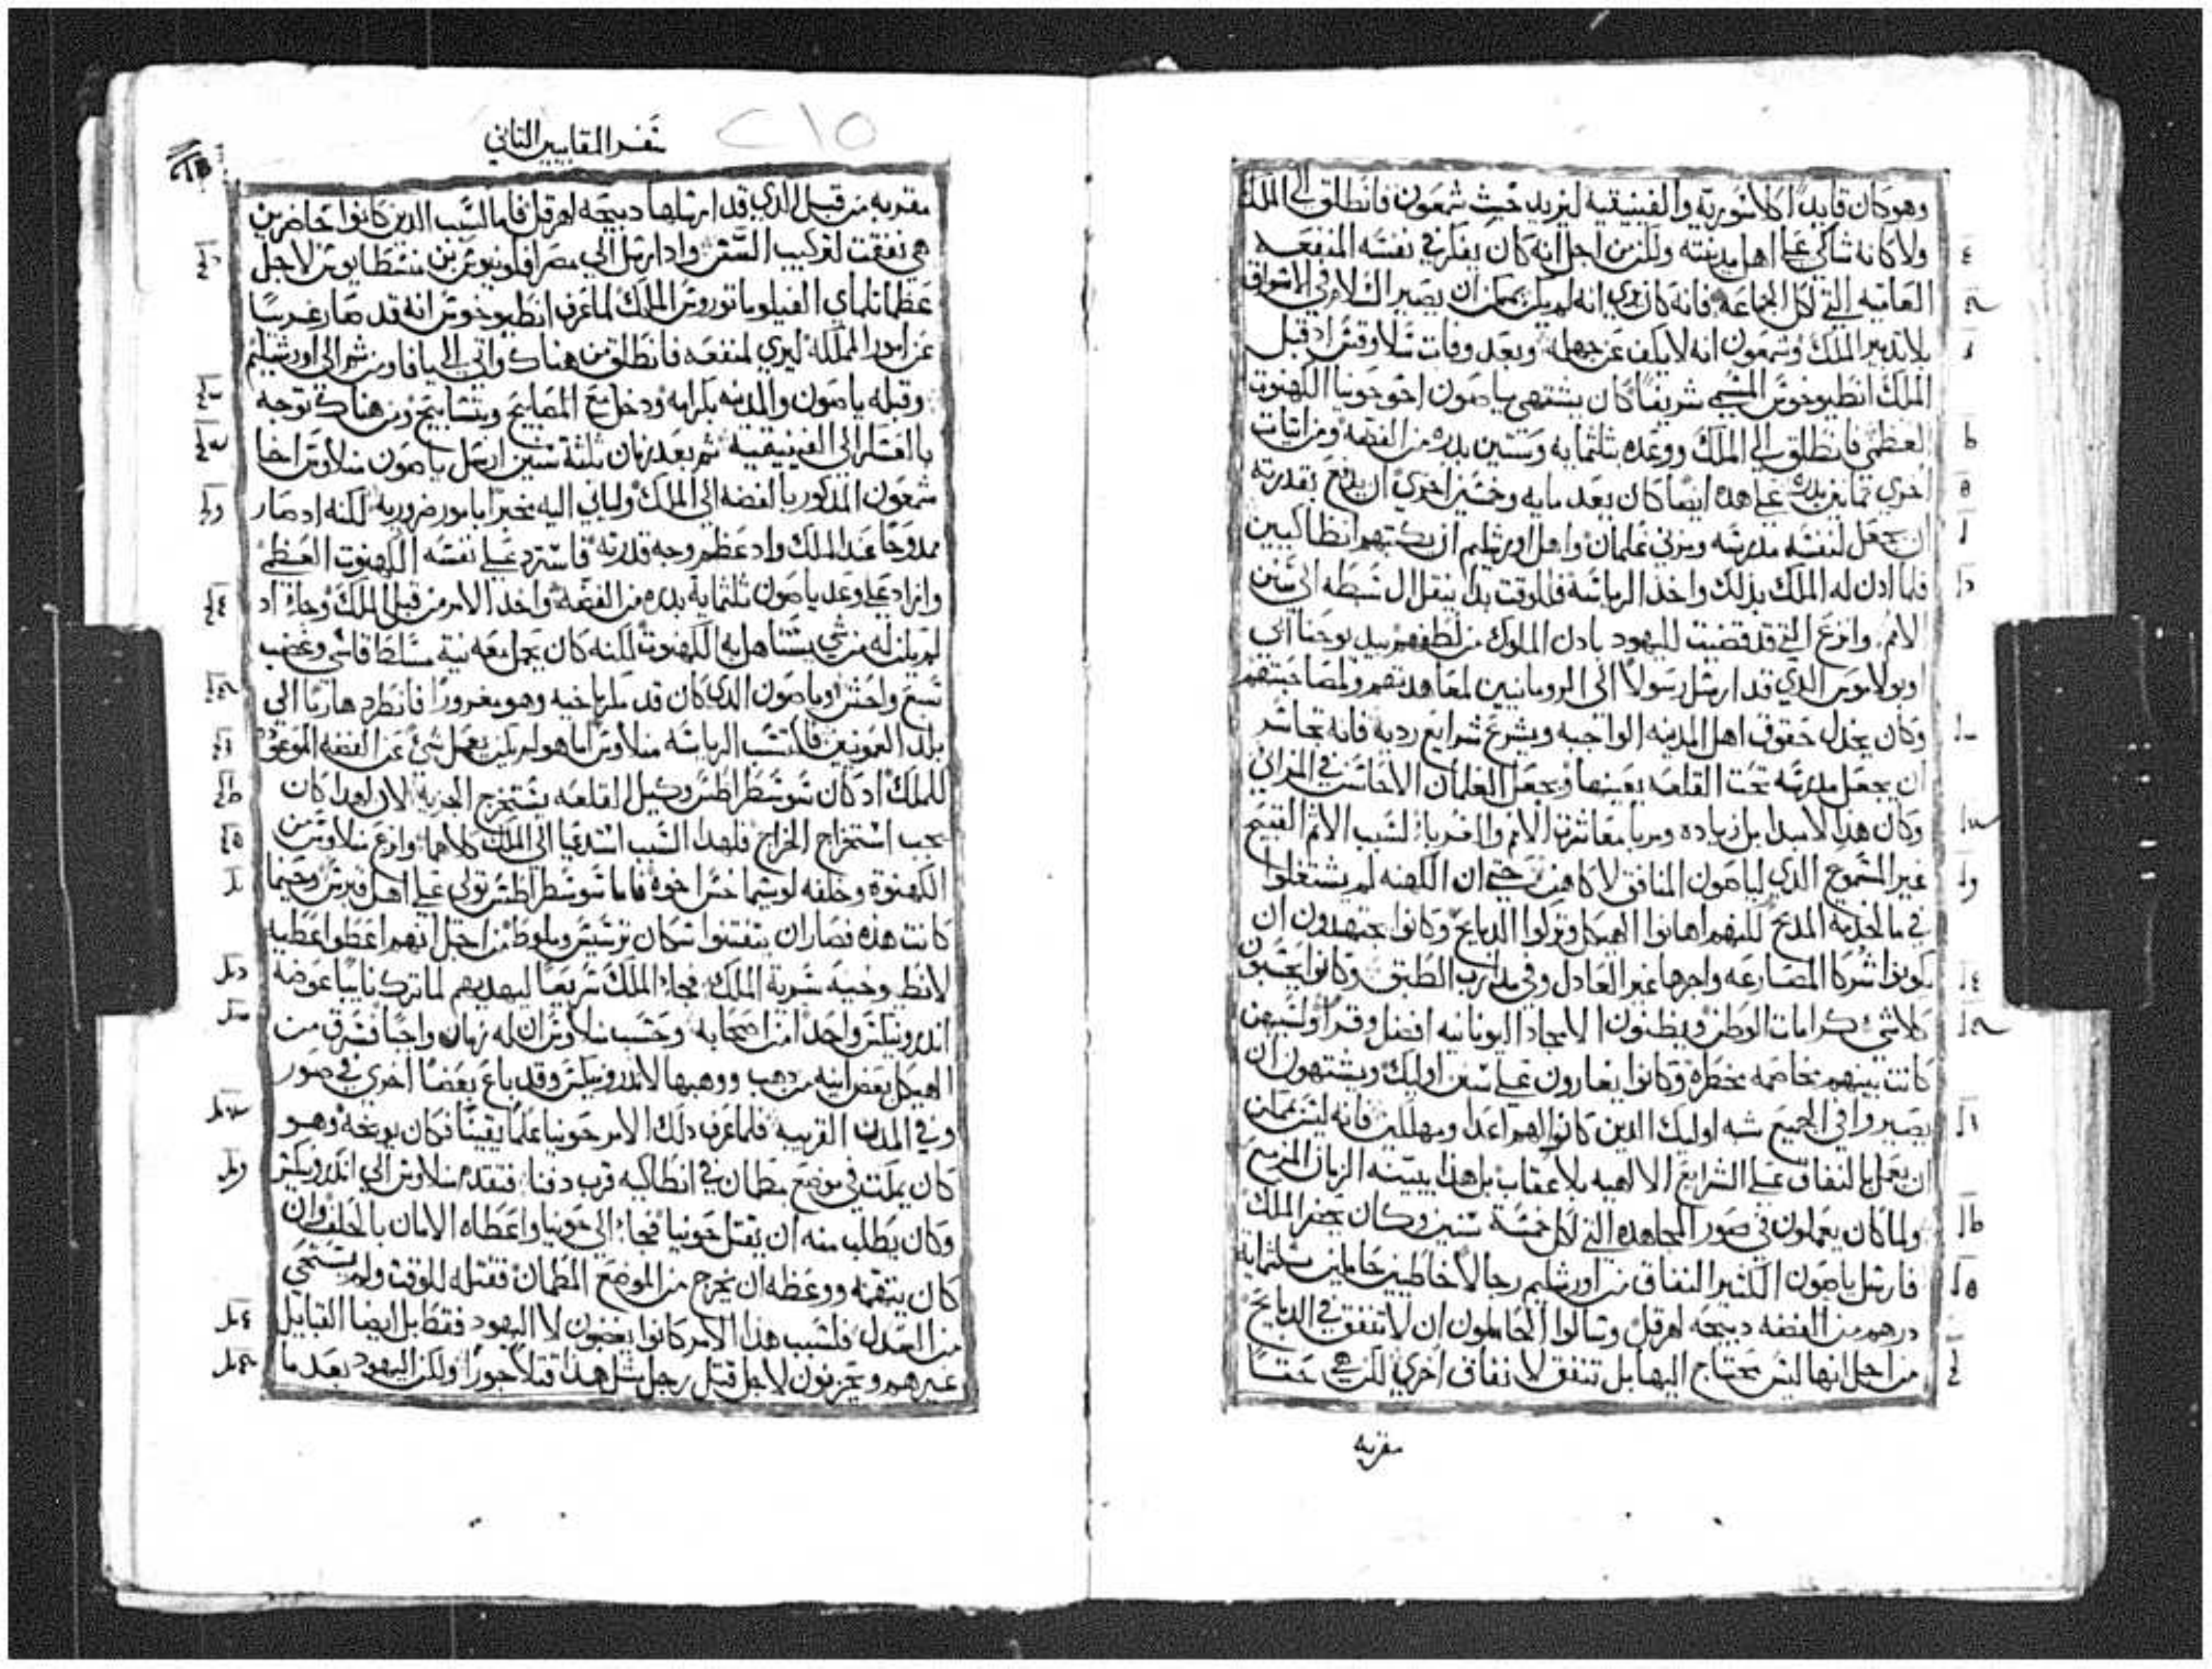 وهو كان قايدا كلاسورية والفنيقيه ليزيد خبث شمعون فانطلق الى الملك
ولا كانه شاكي على اهل مدينته ولكن من اجل انه كان يفكر في نفسه المنفعه
العاميه التي لكل الجماعه فانه كان يري انه لم يكن يمكن ان يصير السلام في الاسواق
بلا تدبير الملك وشمعون انه لا يكف عن جهله وبعد وفات سلاوقس اذ قبل
الملك انطيوخوس المسمى شريفا كان يشتهي ياصون اخو حونيا الكهنوت
العظمي فانطلق الى الملك ووعده بثلثمايه وستين بدره من الفضه ومن اتيات
اخري ثمانين بدره على هده ايضا كان يعد مايه وخمسين اخري ان يدفع بقدرته
ان يجعل لنفسه مدرسه ومربي غلمان واهل اورشليم ان يكتبهم انطاكيين
فلما ادن له الملك بدلك واخد الرياسة فللوقت بدا ينقل ال سبطه الى سنن
الامم وانزع التي قد قضيت لليهود بادل الملوك من لطفهم بيد يوحنا ابي
اوبولاموس الدي قد ارسل رسولا الى الرومانيين لمعاهدتهم ولمصاحبتهم
وكان يخدل حقوق اهل المدينه الواجبه ويشرع شرايع رديه فانه تجاسر
ان يجعل مدرسه تحت القلعه بعينها ويجعل الغلمان الاحاسن في المزاني
وكان هدا لا مبدا بل زياده ومربا معاشرة الامم والغربا لسبب الاثم القبيح
غير المسموع الدي لياصون المنافق لا كاهن حتي ان الكهنه لم يشتغلوا
في ما لخدمة المدبح لكنهم اهانوا الهيكل وتركوا الدبايح وكانوا يجتهدون ان
يكونوا شركا المصارعه واجرها غير العادل وفي تدارب الطبق وكانوا يحسبون
كلاشئ كرامات الوطن ويظنون الامجاد اليونانيه افضل وقرا ولسببهن
كانت بينهم مخاصمه مخطرة وكانوا يغارون على سنن اوليك ويشتهون ان
يصيروا في الجميع شبه اوليك الدين كانوا لهم اعدا ومهلكين فانه ليس يمكن
ان يعمل بالنفاق على الشرايع الالاهيه بلا عقاب بل هدا يبينه الزمان المزمع
ولما كان يعملون في صور المجاهده التي لكل خمسة سنين وكان يحضر الملك
فارسل ياصون الكثير النفاق من اورشليم رجالا خاطيين حاملين ثلثمايه
درهم من الفضه دبيحه لهرقل وسالوا الحاملون ان لا تنفق في الدبايح
من اجل انها ليس يحتاج اليها بل تنفق لانفاق اخري لكن هي حقا
مقربه
سفر المقابيين التاني
٢١٥
مقربه من قبل الدي قد ارسلها دبيحه لهرقل فاما لسبب الدين كانوا حاضرين
هي نفقت لتركيب السفن واد ارسل الى مصر افلونيوس بن منسطاوس لاجل
عظما تلماي الفيلوماتوروس الملك لما عرف انطيوخوس انه قد صار غريبا
عن امور المملكة ليري لمنفعه فانطلق من هناك واتي الى يافا ومن ثم الى اورشليم
وقبله ياصون والمدينه بكرامه ودخل مع المصابيح وبتسابيح ومن هناك توجه
بالعسكر الى الفينيقيه ثم بعد زمان ثلثة سنين ارسل ياصون منلاوس اخا
شمعون المدكور بالفضه الى الملك ولياتي اليه بخبر ابامور ضروريه لكنه اد صار
ممدوحا عند الملك واد عظم وجه قدرته فاسترد على نفسه الكهنوت العظمي
وازاد على وعد ياصون ثلثماية بدره من الفضه واخد الامر من قبل الملك وجاء اد
لم يكن له من شي يستاهل به الكهنوت لكنه كان يحمل معه نية مسلط قاسي وغضب
سبع واحش وياصون الدي كان قد مكر باخيه وهو مغرورا فانطرد هاربا الى
بلد العمونيين فاكتسب الرياسه منلاوس اما هو لم يكن يعمل شئ عن الفضه الموعوده
للملك اد كان سوسطراطس وكيل القلعه يستخرج الجزيه لان لهدا كان
يجب استخراج الخراج فلهدا السبب استدعيا الى الملك كلاهما وانزع منلاوس من
الكهنوة وخلفه لوسيماخس اخوه فاما سوسطراطس تولى على اهل قبرس وحينما
كانت هذه فصار ان يتفتنوا سكان ترسيس وملوط من اجل انهم اعطوا عطيه
لانطيوخيه سرية الملك فجاء الملك سريعا ليهديهم لما ترك نايبا عوضه
اندرونيكس واحدا من اصحابه وحسب منلاوس ان له زمان واجبا فسرق من
الهيكل بعض انيه من دهب ووهبها لاندرونيكس وقد باع بعضا اخري في صور
وفي المدن القريبه فلما عرف دلك الامر حونيا علما يقينا فكان يوبخه وهو
كان يمكث في موضع مطمان في انطاكيه قرب دفنا فتقدم منلاوس الى اندرونيكس
وكان يطلب منه ان يقتل حونيا فجاء الى حونيا واعطاه الامان بالحلف وان
كان يتقمه ووعظه ان يخرج من الموضع المطمان فقتله للوقت ولم يستحي
من العدل فلسبب هدا الامر كانوا يغضبون لا اليهود فقط بل ايضا القبايل
غيرهم ويحزنون لاجل قتل رجل مثل هدا قتلا جورا ولكن اليهود بعد ما